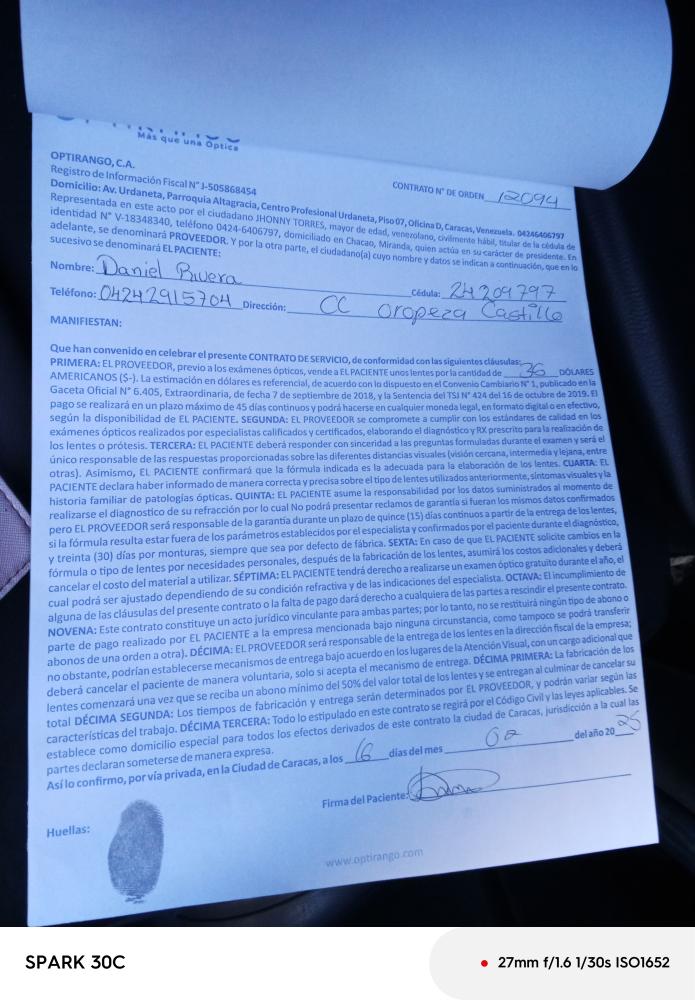 Más que una Óptica
OPTIRANGO, C.A.
Registro de Información Fiscal N° J-505868454
CONTRATO N° DE ORDEN 12094
Domicilio: Av. Urdaneta, Parroquia Altagracia, Centro Profesional Urdaneta, Piso 07, Oficina D, Caracas, Venezuela. 04246406797
Representada en este acto por el ciudadano JHONNY TORRES, mayor de edad, venezolano, civilmente hábil, titular de la cédula de
identidad N° V-18348340, teléfono 0424-6406797, domiciliado en Chacao, Miranda, quien actúa en su carácter de presidente. En
adelante, se denominará PROVEEDOR. Y por la otra parte, el ciudadano(a) cuyo nombre y datos se indican a continuación, que en lo
sucesivo se denominará EL PACIENTE:
Nombre: Daniel Rivera Cédula: 24209797
Teléfono: 04242915704 Dirección: CC Oropeza Castillo
MANIFIESTAN:
Que han convenido en celebrar el presente CONTRATO DE SERVICIO, de conformidad con las siguientes cláusulas:
PRIMERA: EL PROVEEDOR, previo a los exámenes ópticos, vende a EL PACIENTE unos lentes por la cantidad de 36 DÓLARES
AMERICANOS ($-). La estimación en dólares es referencial, de acuerdo con lo dispuesto en el Convenio Cambiario N° 1, publicado en la
Gaceta Oficial N° 6.405, Extraordinaria, de fecha 7 de septiembre de 2018, y la Sentencia del TSJ N° 424 del 16 de octubre de 2019. El
pago se realizará en un plazo máximo de 45 días continuos y podrá hacerse en cualquier moneda legal, en formato digital o en efectivo,
según la disponibilidad de EL PACIENTE. SEGUNDA: EL PROVEEDOR se compromete a cumplir con los estándares de calidad en los
exámenes ópticos realizados por especialistas calificados y certificados, elaborando el diagnóstico y RX prescrito para la realización de
los lentes o prótesis. TERCERA: EL PACIENTE deberá responder con sinceridad a las preguntas formuladas durante el examen y será el
único responsable de las respuestas proporcionadas sobre las diferentes distancias visuales (visión cercana, intermedia y lejana, entre
otras). Asimismo, EL PACIENTE confirmará que la fórmula indicada es la adecuada para la elaboración de los lentes. CUARTA: EL
PACIENTE declara haber informado de manera correcta y precisa sobre el tipo de lentes utilizados anteriormente, síntomas visuales y la
historia familiar de patologías ópticas. QUINTA: EL PACIENTE asume la responsabilidad por los datos suministrados al momento de
realizarse el diagnostico de su refracción por lo cual No podrá presentar reclamos de garantía si fueran los mismos datos confirmados
pero EL PROVEEDOR será responsable de la garantía durante un plazo de quince (15) días continuos a partir de la entrega de los lentes,
si la fórmula resulta estar fuera de los parámetros establecidos por el especialista y confirmados por el paciente durante el diagnóstico,
y treinta (30) días por monturas, siempre que sea por defecto de fábrica. SEXTA: En caso de que EL PACIENTE solicite cambios en la
fórmula o tipo de lentes por necesidades personales, después de la fabricación de los lentes, asumirá los costos adicionales y deberá
cancelar el costo del material a utilizar. SÉPTIMA: EL PACIENTE tendrá derecho a realizarse un examen óptico gratuito durante el año, el
cual podrá ser ajustado dependiendo de su condición refractiva y de las indicaciones del especialista. OCTAVA: El incumplimiento de
alguna de las cláusulas del presente contrato o la falta de pago dará derecho a cualquiera de las partes a rescindir el presente contrato.
NOVENA: Este contrato constituye un acto jurídico vinculante para ambas partes; por lo tanto, no se restituirá ningún tipo de abono o
parte de pago realizado por EL PACIENTE a la empresa mencionada bajo ninguna circunstancia, como tampoco se podrá transferir
abonos de una orden a otra). DÉCIMA: EL PROVEEDOR será responsable de la entrega de los lentes en la dirección fiscal de la empresa;
no obstante, podrían establecerse mecanismos de entrega bajo acuerdo en los lugares de la Atención Visual, con un cargo adicional que
deberá cancelar el paciente de manera voluntaria, solo si acepta el mecanismo de entrega. DÉCIMA PRIMERA: La fabricación de los
lentes comenzará una vez que se reciba un abono mínimo del 50% del valor total de los lentes y se entregan al culminar de cancelar su
total DÉCIMA SEGUNDA: Los tiempos de fabricación y entrega serán determinados por EL PROVEEDOR, y podrán variar según las
características del trabajo. DÉCIMA TERCERA: Todo lo estipulado en este contrato se regirá por el Código Civil y las leyes aplicables. Se
establece como domicilio especial para todos los efectos derivados de este contrato la ciudad de Caracas, jurisdicción a la cual las
partes declaran someterse de manera expresa.
Así lo confirmo, por vía privada, en la Ciudad de Caracas, a los 16 días del mes 02 del año 2025
Firma del Paciente:
Huellas:
www.optirango.com
SPARK 30C
27mm f/1.6 1/30s ISO1652